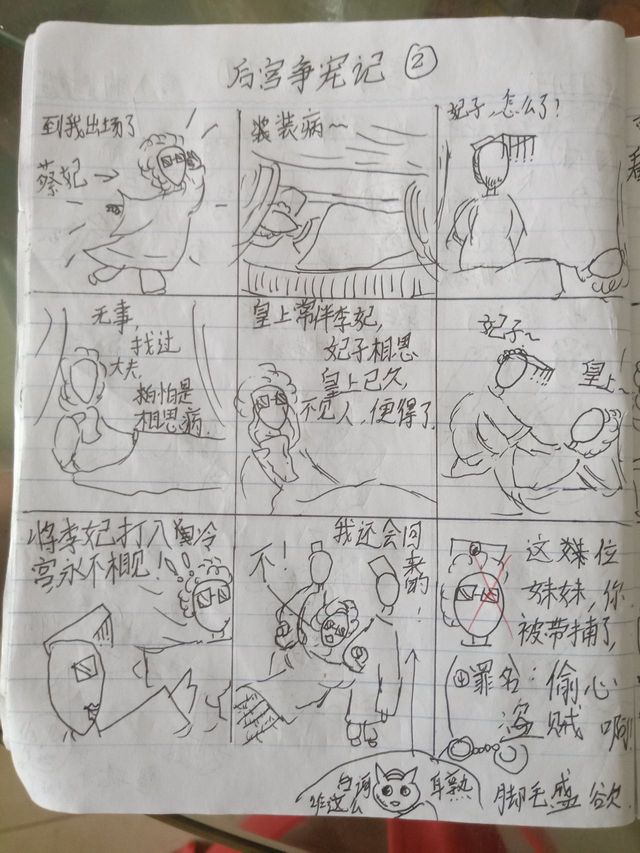 后宫争宠记 ②
到我出场了
蔡妃→
装装病～
妃子,怎么了?
无事,
找过
大夫,
怕怕是
相思病.
皇上常伴李妃,
妃子相思
皇上已久,
不见人,便得了.
妃子～
皇上～
将李妃打入冷
宫,永不相见!
不!
我还会回
来的!
这位
妹妹,你
被带捕了,
罪名:偷心
盗贼啊!!
台词
咋这么
耳熟
脚毛盛欲